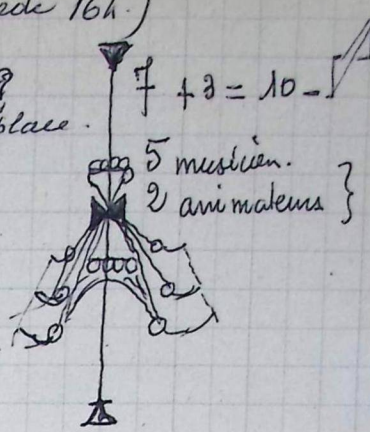 16h.
place.
7 + 3 = 10 -
5 musicien.
2 animateurs }